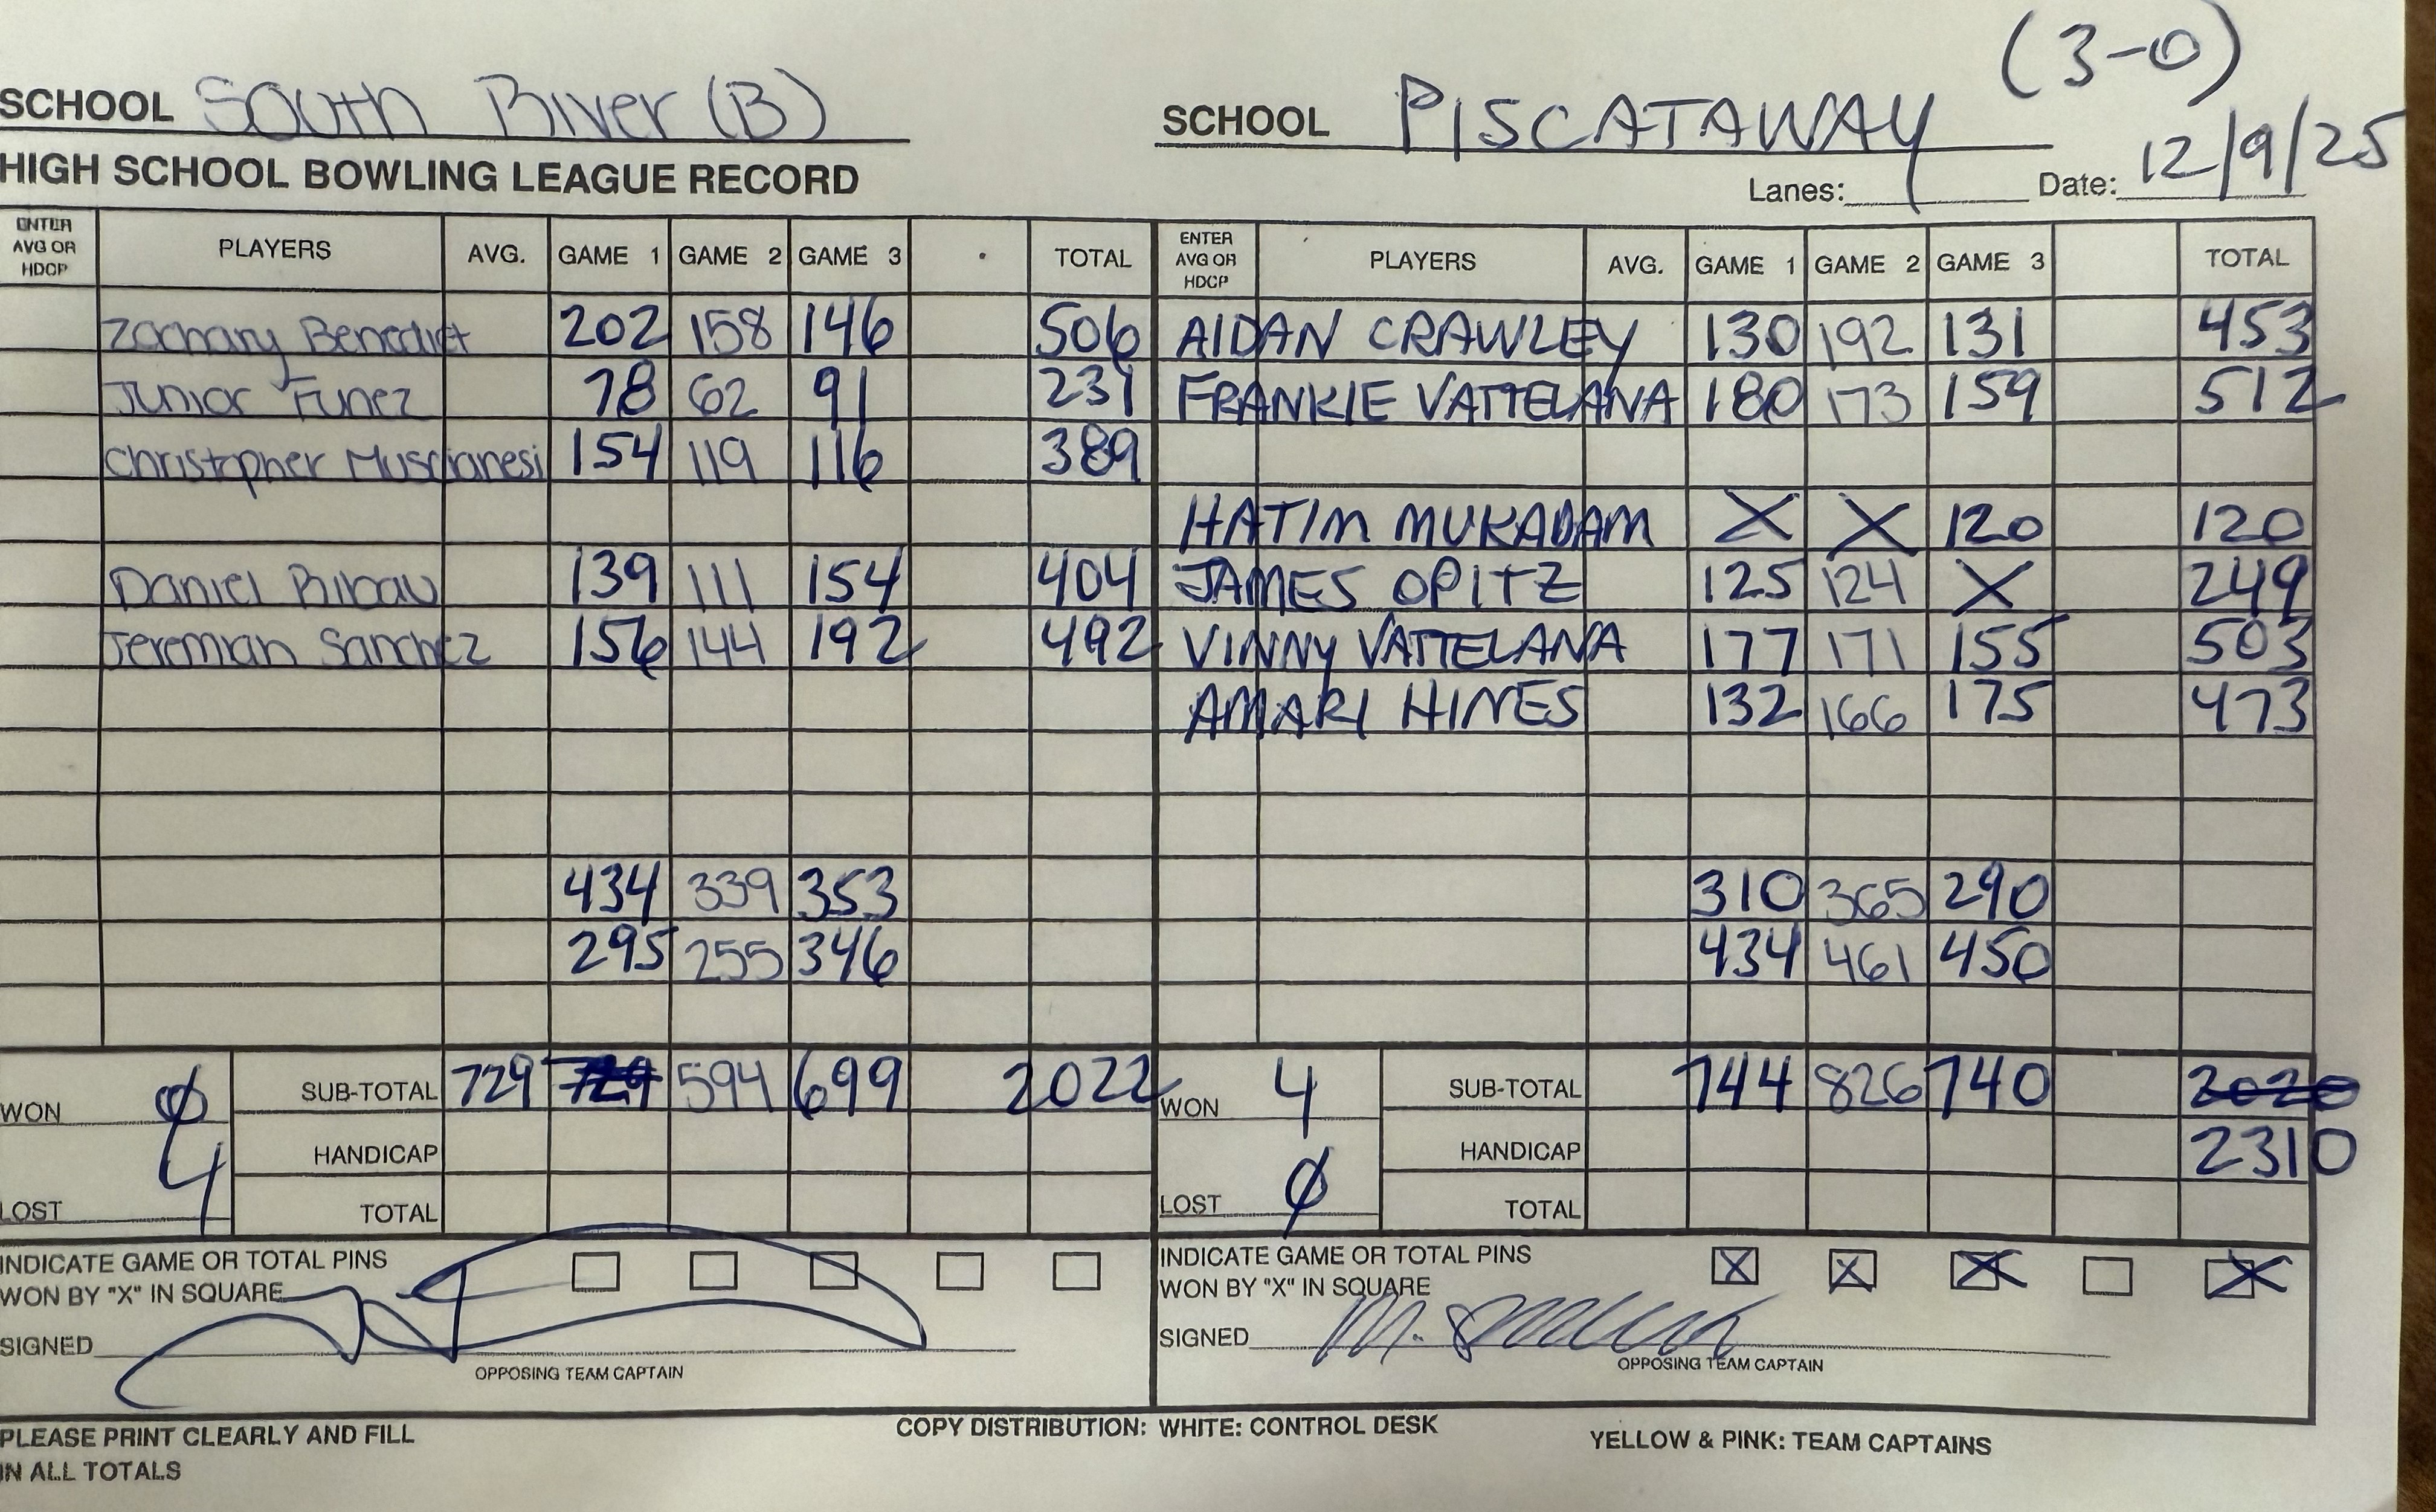 (3-0)
SCHOOL South River (B) SCHOOL PISCATAWAY
HIGH SCHOOL BOWLING LEAGUE RECORD Lanes: Date: 12/9/25
ENTER AVG OR HDCP PLAYERS AVG. GAME 1 GAME 2 GAME 3 TOTAL ENTER AVG OR HDCP PLAYERS AVG. GAME 1 GAME 2 GAME 3 TOTAL
Zachary Benedict 202 158 146 506 AIDAN CRAWLEY 130 192 131 453
Junior Funez 78 62 91 231 FRANKIE VATTELANA 180 173 159 512
Christopher Muscianesi 154 119 116 389
HATIM MUKADAM X X 120 120
Daniel Bilbau 139 111 154 404 JAMES OPITZ 125 124 X 249
Jeremiah Sanchez 156 144 192 492 VINNY VATTELANA 177 171 155 503
AMARI HINES 132 166 175 473
434 339 353 310 365 290
295 255 346 434 461 450
WON Ø SUB-TOTAL 729 729 594 699 2022 WON 4 SUB-TOTAL 744 826 740 2020
HANDICAP HANDICAP 2310
LOST 4 TOTAL LOST Ø TOTAL
INDICATE GAME OR TOTAL PINS INDICATE GAME OR TOTAL PINS
WON BY "X" IN SQUARE WON BY "X" IN SQUARE X X X X
SIGNED SIGNED M.
OPPOSING TEAM CAPTAIN OPPOSING TEAM CAPTAIN
PLEASE PRINT CLEARLY AND FILL COPY DISTRIBUTION: WHITE: CONTROL DESK YELLOW & PINK: TEAM CAPTAINS
IN ALL TOTALS